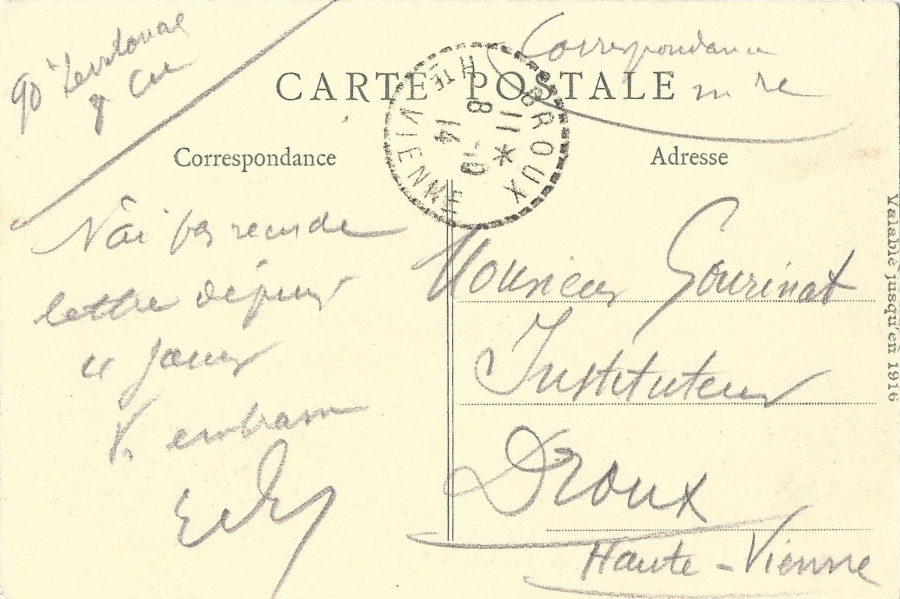 90e Territorial
8 Cie
Correspondance
CARTE POSTALE
BROUX
HTE VIENNE
11 * -10
8 14
Correspondance
Adresse
N'ai pas reçu de
lettre depuis
4 jours
V. embrasse
Monsieur Gourinat
Instituteur
Droux
Haute-Vienne
Valable jusqu'en 1916